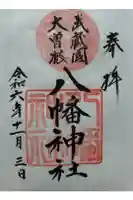 奉拝
武蔵國
大曽根
八幡神社
令和六年十一月三日